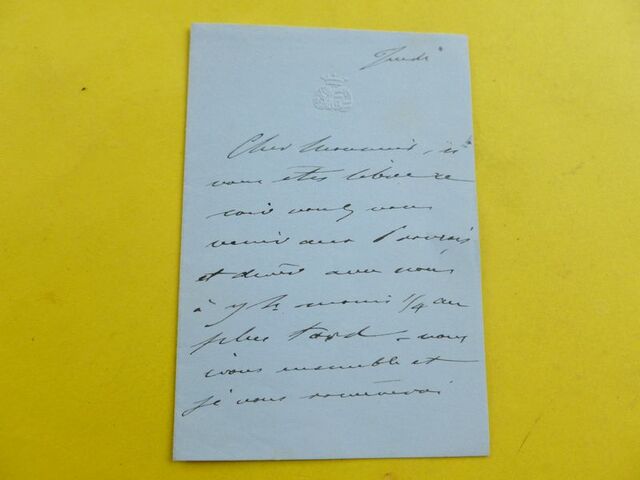 Jeudi
Cher Monsieur, si
vous etes libre ce
soir voulez vous
venir aux
et diner avec nous
à 7 h moins 1/4 au
plus tard - nous
irons ensemble et
je vous ramènerai